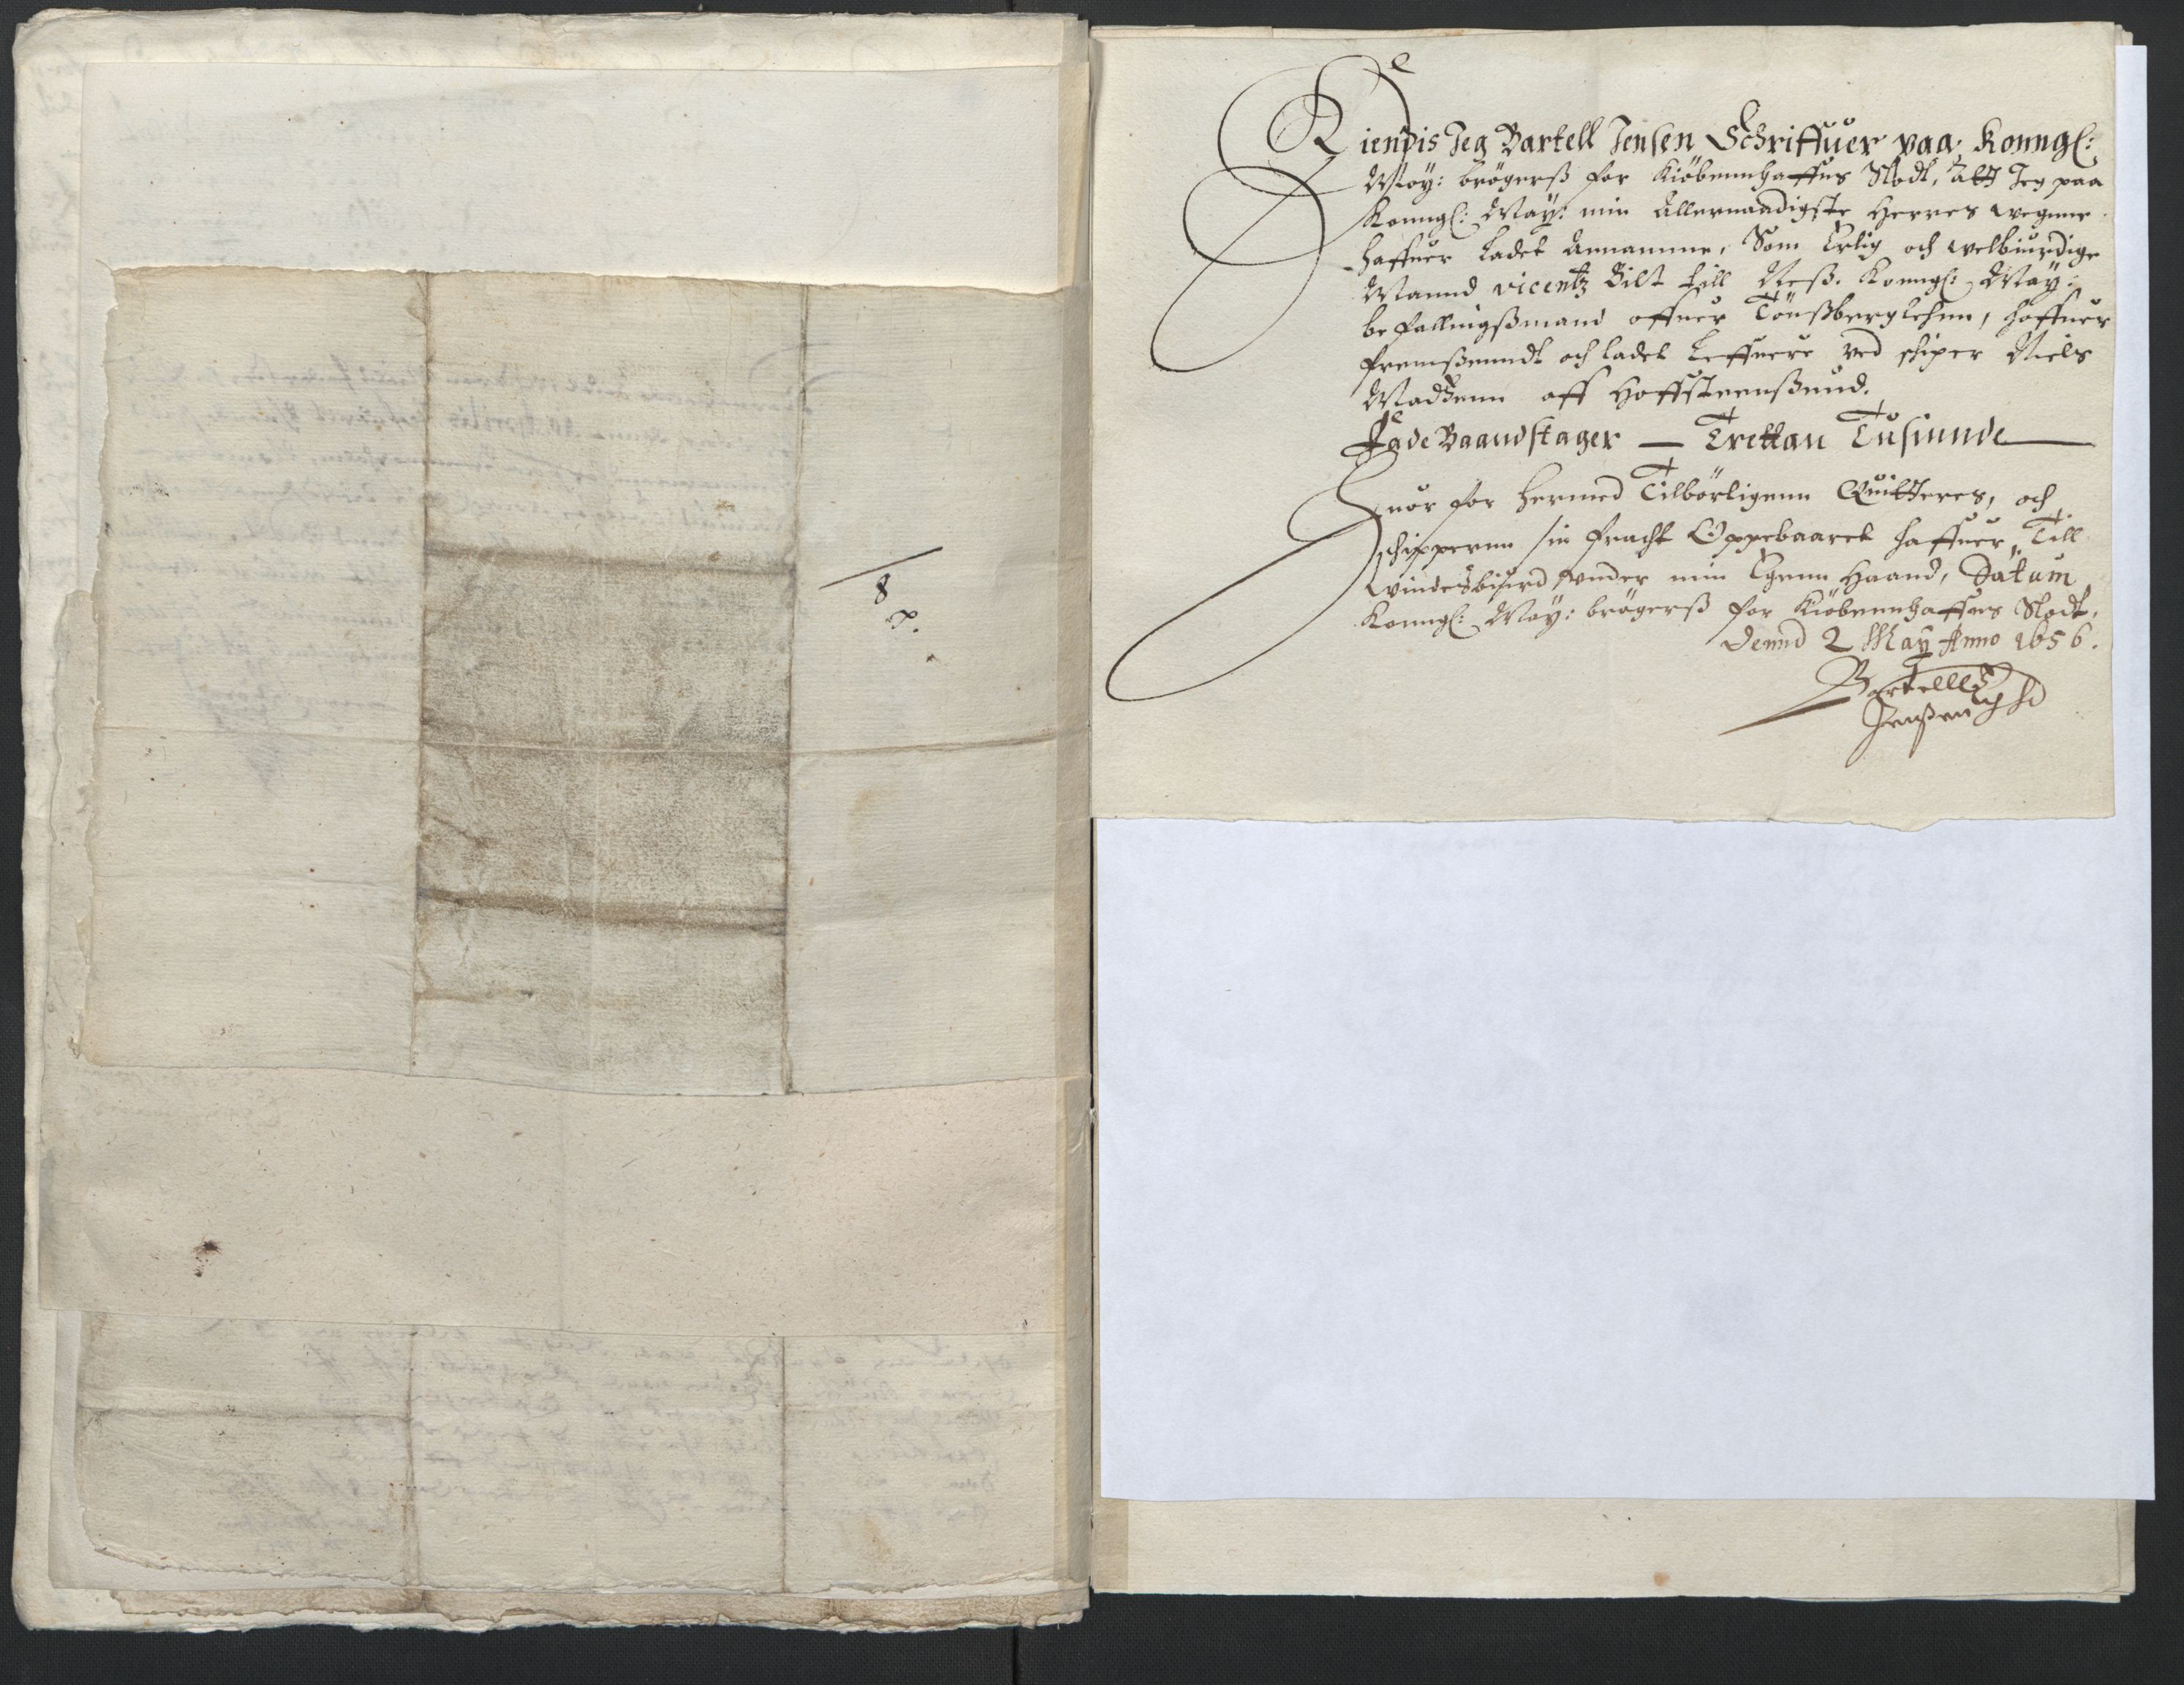 8
Kiendis Jeg Bartell Jensen Schriffuer paa Konngl:
May: brögerß for Kiöbennhaffns Slodt, att Jeg paa
Konngl: May: min Allernaadigste Herres wegnne
haffuer ladet Annamme, Som Erlig och welbiurdige
Mannd vicentz Bilt till Neß. Konngl: May:
befallingßmand offuer Tönßberglehnn, haffuer
fremßenndt och ladet Leffuere ved skiper Niels
Madzenn aff Hoffsteenßund.
Fade Baandstager — Trettan Tusinnde
Huor for hermed Tilbörligenn Quitteres, och
schippernn sin fracht Oppebaaret haffuer, Till
windesbiurd wnder min Egenn Haand, Datum
Konngl: May: brögerß for Kiöbennhaffns Slodt,
Dennd 2 May Anno 1656.
Bartelll
Jenßen